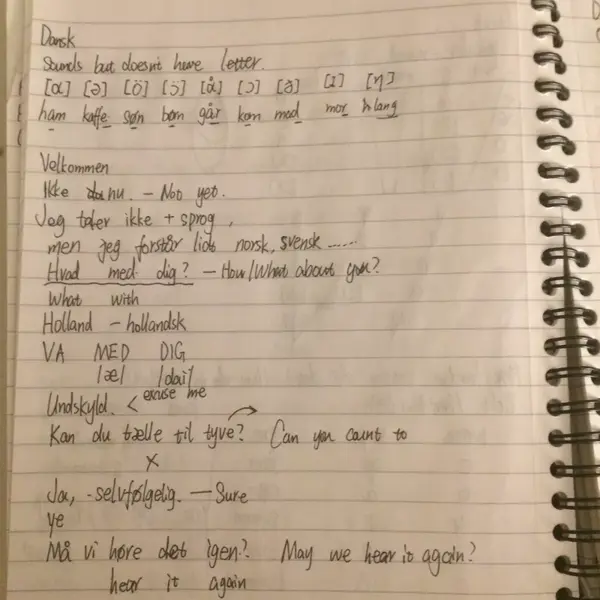 Dansk
Sounds but doesn't have letter.
[ɑ] [ə] [ö] [ɔ̈] [å] [ɔ] [ð] [ɪ] [η]
ham kaffe søn børn går kom med mor lang
Velkommen
Ikke nu. - Not yet.
Jeg taler ikke + sprog,
men jeg forstår lidt norsk, svensk ......
Hvad med dig? - How/What about you?
What with
Holland - hollandsk
VA MED DIG
/æ/ /dai/
Undskyld. < excuse me
Kan du tælle til tyve? Can you count to
x
Ja, - selvfølgelig. - Sure
ye
Må vi høre det igen? May we hear it again?
hear it again